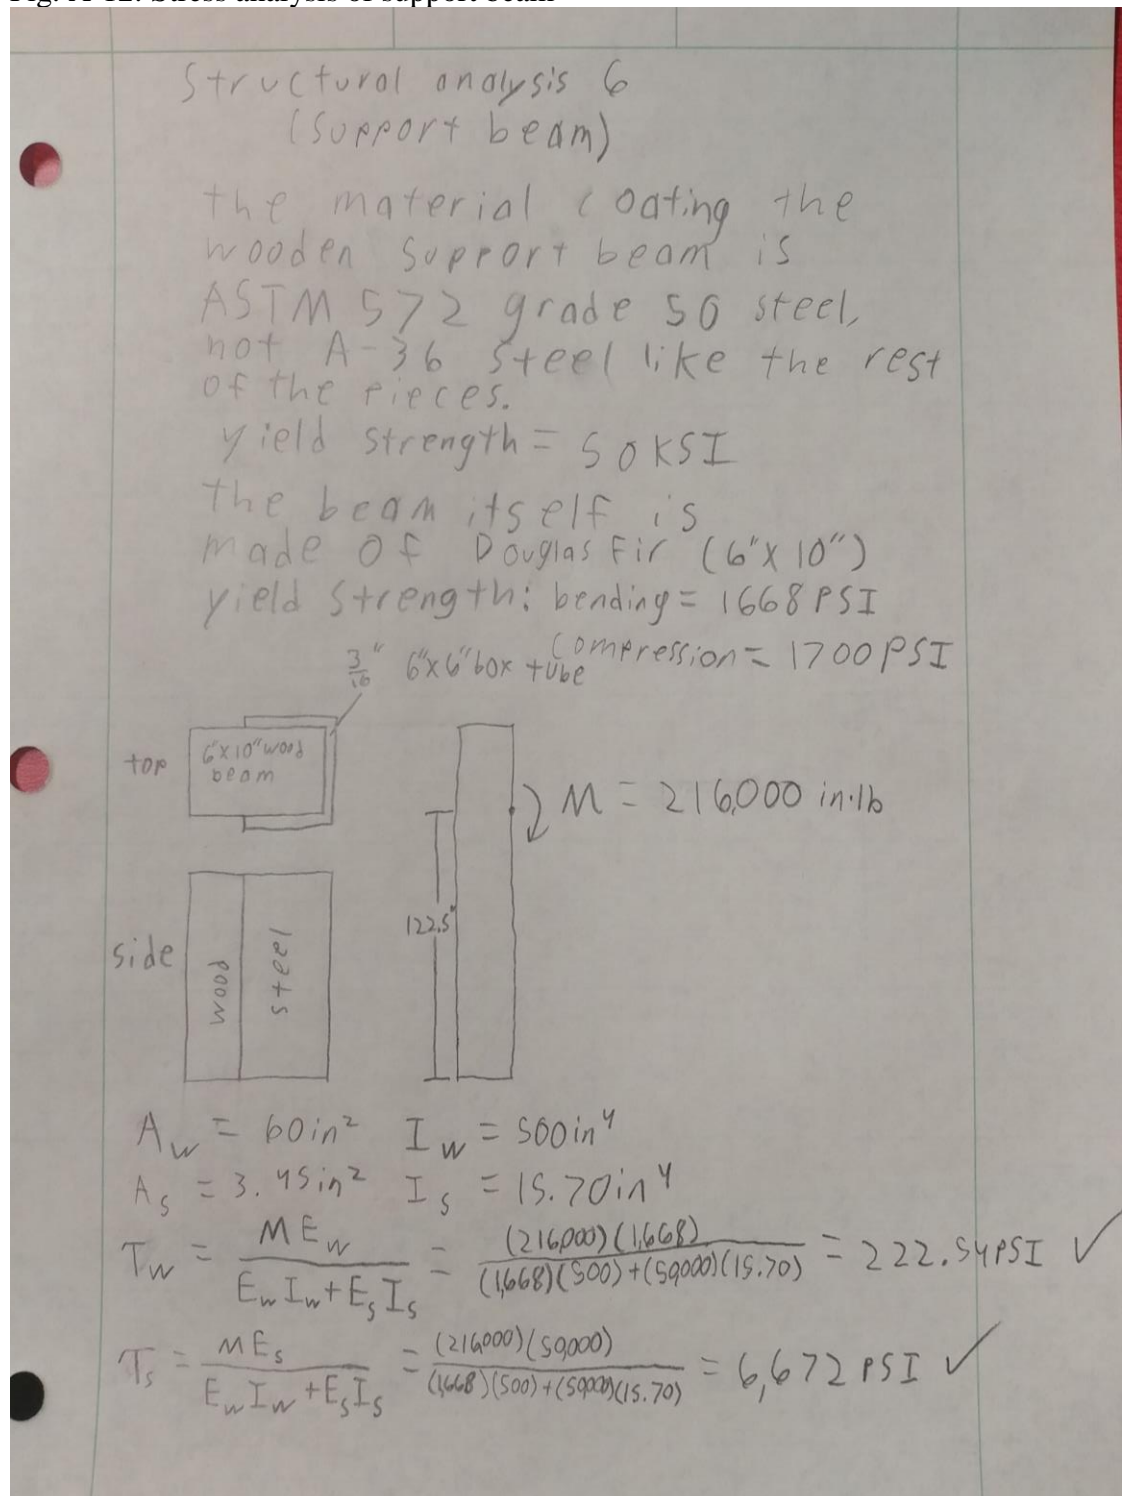 Fig. A-12: Stress analysis of support beam
Structural analysis 6
(support beam)
the material coating the
wooden support beam is
ASTM 572 grade 50 steel,
not A-36 steel like the rest
of the pieces.
yield strength = 50KSI
the beam itself is
made of Douglas Fir (6"x10")
yield strength: bending = 1668 PSI
compression = 1700 PSI
3/16" 6"x6" box tube
top
6"x10" wood
beam
M = 216,000 in·lb
122.5"
side
wood
steel
A_w = 60in² I_w = 500in⁴
A_s = 3.45in² I_s = 15.70in⁴
T_w = ME_w / (E_w I_w + E_s I_s) = (216,000)(1,668) / ((1,668)(500)+(50,000)(15.70)) = 222.54PSI ✓
T_s = ME_s / (E_w I_w + E_s I_s) = (216,000)(50,000) / ((1,668)(500)+(50,000)(15.70)) = 6,672 PSI ✓